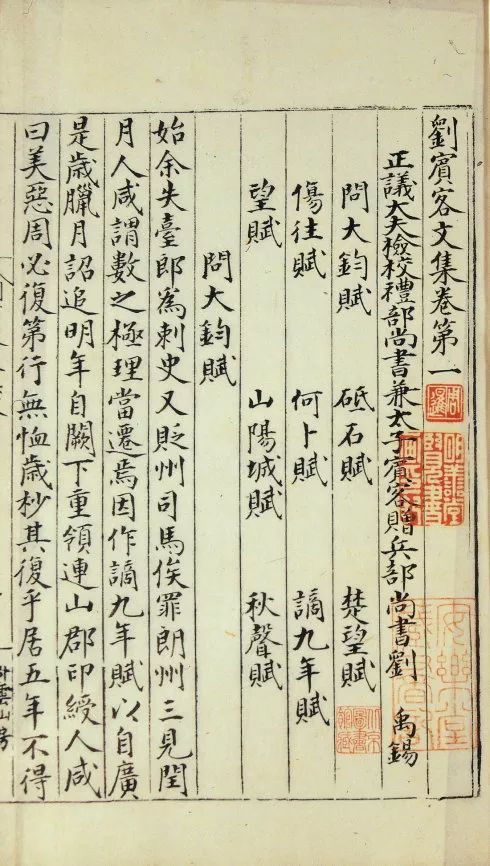 劉賓客文集卷第一
正議大夫檢校禮部尚書兼太子賓客贈兵部尚書劉 禹錫
問大鈞賦 砥石賦 楚望賦
傷往賦 何卜賦 謫九年賦
望賦 山陽城賦 秋聲賦
問大鈞賦
始余失臺郎爲刺史又貶州司馬俟罪朗州三見閏
月人咸謂數之極理當遷焉因作謫九年賦以自廣
是歲臘月詔追明年自闕下重領連山郡印綬人咸
曰美惡周必復第行無恤歲杪其復乎居五年不得